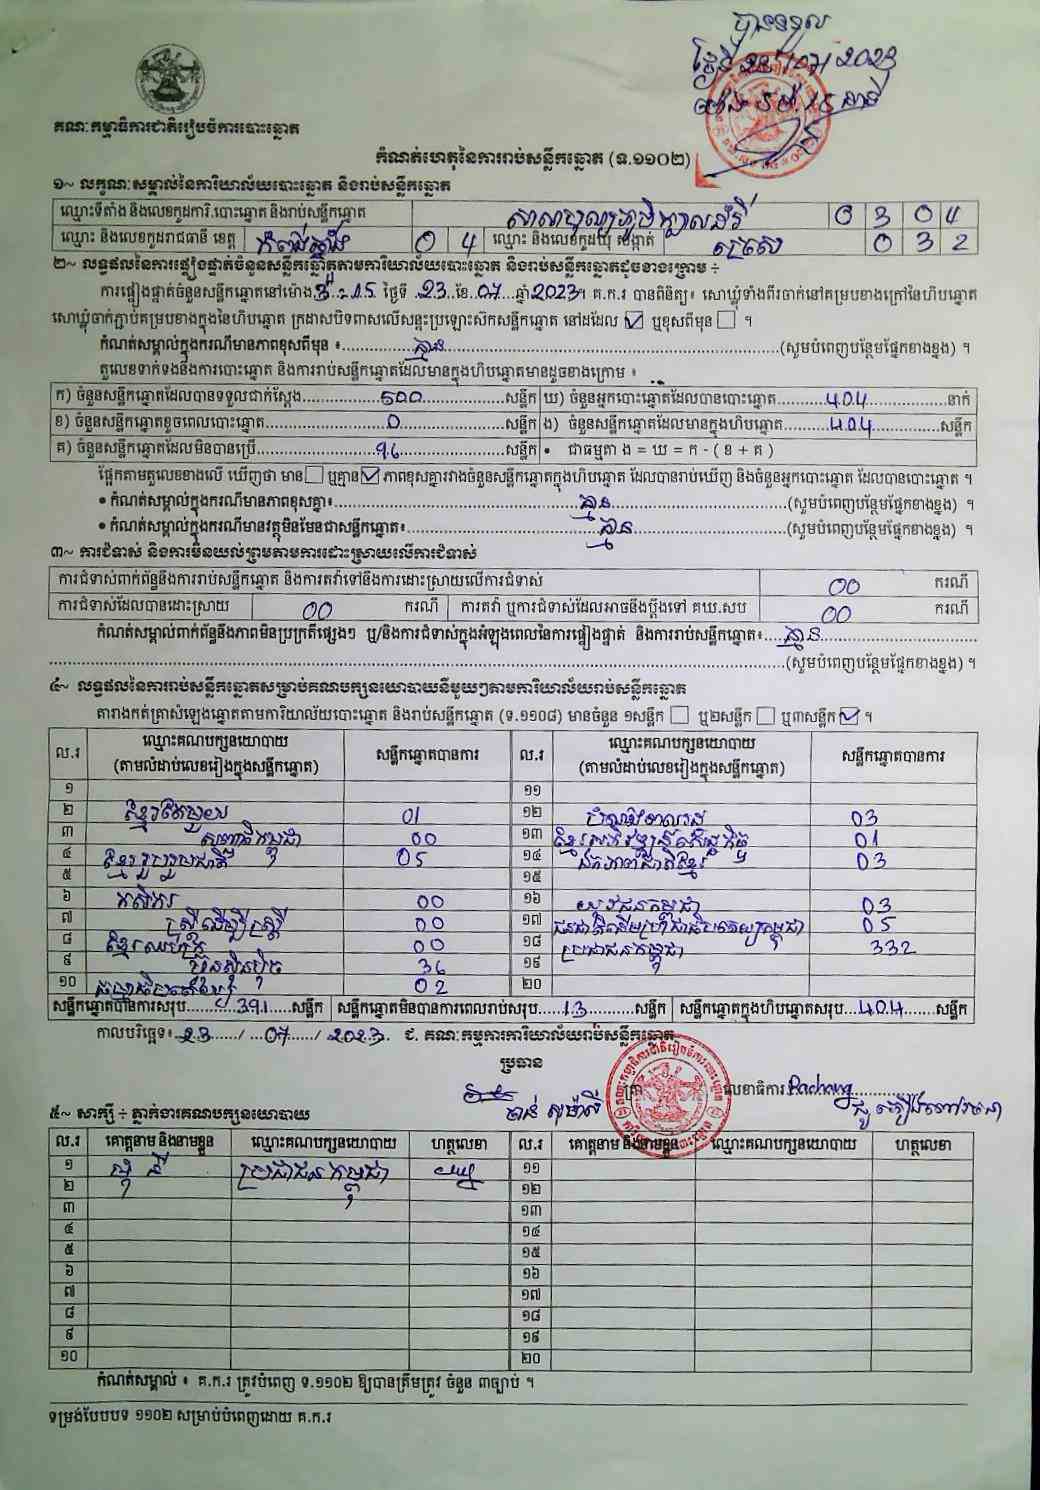 បានទទួល
ថ្ងៃទី 23/07/2023
ម៉ោង ៤ និង ១៥ នាទី
គណៈកម្មាធិការជាតិរៀបចំការបោះឆ្នោត
កំណត់ហេតុនៃការរាប់សន្លឹកឆ្នោត (ទ.១១០២)
១~ លក្ខណៈសម្គាល់នៃការិយាល័យបោះឆ្នោត និងរាប់សន្លឹកឆ្នោត
ឈ្មោះទីតាំង និងលេខកូដការិ.បោះឆ្នោត និងរាប់សន្លឹកឆ្នោត 0 3 0 4
ឈ្មោះ និងលេខកូដរាជធានី ខេត្ត កំពង់ឆ្នាំង 0 4 ឈ្មោះ និងលេខកូដឃុំ សង្កាត់ 0 3 2
២~ លទ្ធផលនៃការផ្ទៀងផ្ទាត់ចំនួនសន្លឹកឆ្នោតតាមការិយាល័យបោះឆ្នោត និងរាប់សន្លឹកឆ្នោតដូចខាងក្រោម ÷
ការផ្ទៀងផ្ទាត់ចំនួនសន្លឹកឆ្នោតនៅម៉ោង 3 : 15 ថ្ងៃទី 23 ខែ 07 ឆ្នាំ 2023។ គ.ក.រ បានពិនិត្យ៖ សោឃ្លុំទាំងពីរចាក់នៅគម្របខាងក្រៅនៃហិបឆ្នោត
សោឃ្លុំចាក់ភ្ជាប់គម្របខាងក្នុងនៃហិបឆ្នោត ក្រដាសបិទពាសលើសន្ទះប្រឡោះស៊កសន្លឹកឆ្នោត នៅដដែល ☑ ឬខុសពីមុន ☐ ។
កំណត់សម្គាល់ក្នុងករណីមានភាពខុសពីមុន ៖ គ្មាន (សូមបំពេញបន្ថែមផ្នែកខាងខ្នង) ។
តួលេខទាក់ទងនឹងការបោះឆ្នោត និងការរាប់សន្លឹកឆ្នោតដែលមានក្នុងហិបឆ្នោតមានដូចខាងក្រោម ៖
ក) ចំនួនសន្លឹកឆ្នោតដែលបានទទួលជាក់ស្តែង 500 សន្លឹក ឃ) ចំនួនអ្នកបោះឆ្នោតដែលបានបោះឆ្នោត 404 នាក់
ខ) ចំនួនសន្លឹកឆ្នោតខូចពេលបោះឆ្នោត 0 សន្លឹក ង) ចំនួនសន្លឹកឆ្នោតដែលមានក្នុងហិបឆ្នោត 404 សន្លឹក
គ) ចំនួនសន្លឹកឆ្នោតដែលមិនបានប្រើ 96 សន្លឹក • ជាធម្មតា ង = ឃ = ក - ( ខ + គ )
ផ្អែកតាមតួលេខខាងលើ ឃើញថា មាន ☐ ឬគ្មាន ☑ ភាពខុសគ្នារវាងចំនួនសន្លឹកឆ្នោតក្នុងហិបឆ្នោត ដែលបានរាប់ឃើញ និងចំនួនអ្នកបោះឆ្នោត ដែលបានបោះឆ្នោត ។
• កំណត់សម្គាល់ក្នុងករណីមានភាពខុសគ្នា៖ គ្មាន (សូមបំពេញបន្ថែមផ្នែកខាងខ្នង) ។
• កំណត់សម្គាល់ក្នុងករណីមានវត្ថុមិនមែនជាសន្លឹកឆ្នោត៖ គ្មាន (សូមបំពេញបន្ថែមផ្នែកខាងខ្នង) ។
៣~ ការជំទាស់ និងការមិនយល់ព្រមតាមការដោះស្រាយលើការជំទាស់
ការជំទាស់ពាក់ព័ន្ធនឹងការរាប់សន្លឹកឆ្នោត និងការតវ៉ាទៅនឹងការដោះស្រាយលើការជំទាស់ 00 ករណី
ការជំទាស់ដែលបានដោះស្រាយ 00 ករណី ការតវ៉ា ឬការជំទាស់ដែលអាចនឹងប្តឹងទៅ គឃ.សប 00 ករណី
កំណត់សម្គាល់ពាក់ព័ន្ធនឹងភាពមិនប្រក្រតីផ្សេងៗ ឬ/និងការជំទាស់ក្នុងអំឡុងពេលនៃការផ្ទៀងផ្ទាត់ និងការរាប់សន្លឹកឆ្នោត៖ គ្មាន
(សូមបំពេញបន្ថែមផ្នែកខាងខ្នង) ។
៤~ លទ្ធផលនៃការរាប់សន្លឹកឆ្នោតសម្រាប់គណបក្សនយោបាយនីមួយៗតាមការិយាល័យរាប់សន្លឹកឆ្នោត
តារាងកត់ត្រាសំឡេងឆ្នោតតាមការិយាល័យបោះឆ្នោត និងរាប់សន្លឹកឆ្នោត (ទ.១១០៨) មានចំនួន ១សន្លឹក ☐ ឬ២សន្លឹក ☐ ឬ៣សន្លឹក ☑ ។
ល.រ ឈ្មោះគណបក្សនយោបាយ (តាមលំដាប់លេខរៀងក្នុងសន្លឹកឆ្នោត) សន្លឹកឆ្នោតបានការ ល.រ ឈ្មោះគណបក្សនយោបាយ (តាមលំដាប់លេខរៀងក្នុងសន្លឹកឆ្នោត) សន្លឹកឆ្នោតបានការ
១ ១១
២ ខ្មែរតែមួយ 01 ១២ 03
៣ សញ្ជាតិកម្ពុជា 00 ១៣ ខ្មែរអភិវឌ្ឍន៍សេដ្ឋកិច្ច 01
៤ ខ្មែររួបរួមជាតិ 05 ១៤ ឯកភាពជាតិខ្មែរ 03
៥ ១៥
៦ កសិករ 00 ១៦ យុវជនកម្ពុជា 03
៧ ស្រ្តីដើម្បីស្រ្តី 00 ១៧ ជនជាតិដើមប្រជាធិបតេយ្យកម្ពុជា 05
៨ ខ្មែរឈប់ក្រ 00 ១៨ ប្រជាជនកម្ពុជា 332
៩ ហ៊្វុនស៊ិនប៉ិច 36 ១៩
១០ 02 ២០
សន្លឹកឆ្នោតបានការសរុប 391 សន្លឹក សន្លឹកឆ្នោតមិនបានការពេលរាប់សរុប 13 សន្លឹក សន្លឹកឆ្នោតក្នុងហិបឆ្នោតសរុប 404 សន្លឹក
កាលបរិច្ឆេទ៖ 23 / 07 / 2023 ជ. គណៈកម្មការការិយាល័យរាប់សន្លឹកឆ្នោត
ប្រធាន
ចាន់ សុម៉ាលី លេខាធិការ
៥~ សាក្សី ÷ ភ្នាក់ងារគណបក្សនយោបាយ
ល.រ គោត្តនាម និងនាមខ្លួន ឈ្មោះគណបក្សនយោបាយ ហត្ថលេខា ល.រ គោត្តនាម និងនាមខ្លួន ឈ្មោះគណបក្សនយោបាយ ហត្ថលេខា
១ ប្រជាជនកម្ពុជា ១១
២ ១២
៣ ១៣
៤ ១៤
៥ ១៥
៦ ១៦
៧ ១៧
៨ ១៨
៩ ១៩
១០ ២០
កំណត់សម្គាល់ ៖ គ.ក.រ ត្រូវបំពេញ ទ.១១០២ ឱ្យបានត្រឹមត្រូវ ចំនួន ៣ច្បាប់ ។
ទម្រង់បែបបទ ១១០២ សម្រាប់បំពេញដោយ គ.ក.រ